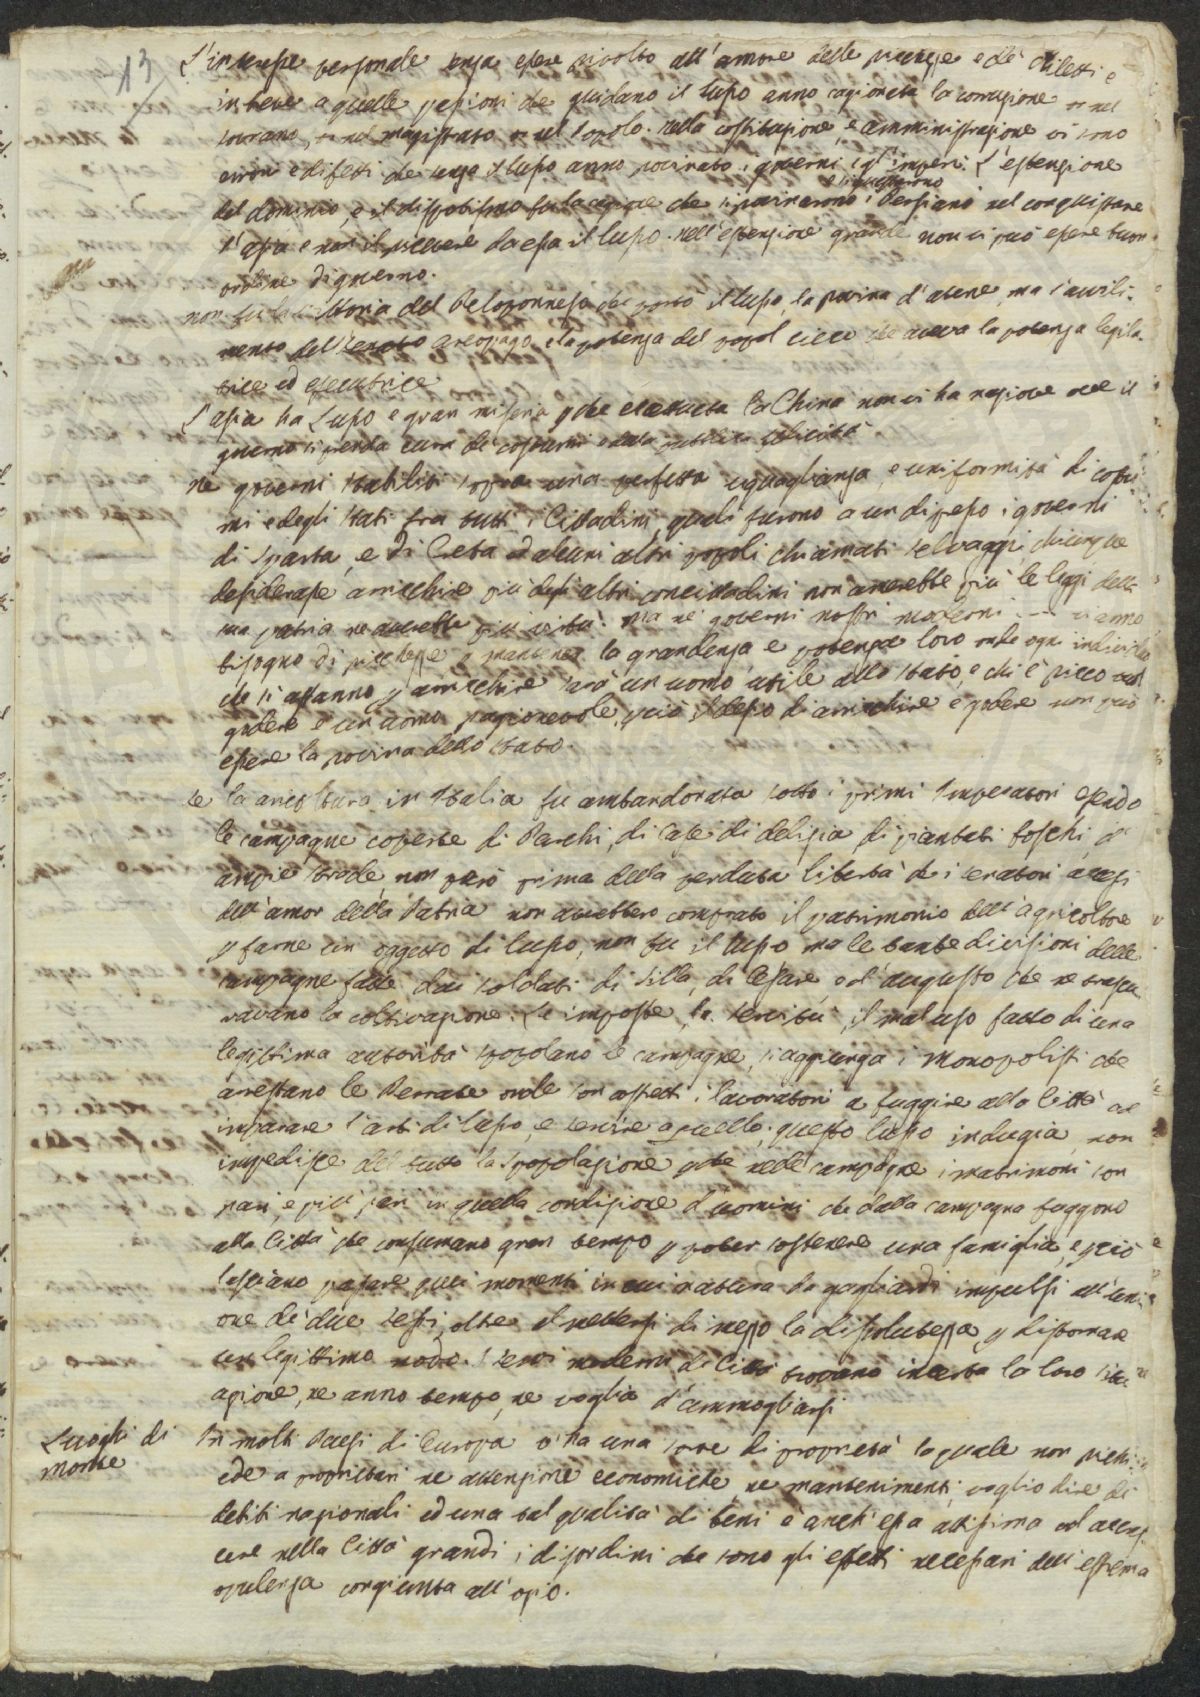 13
L'interesse personale senza essere rivolto all'amore delle ricchezze e de' diletti e
in bene a quelle passioni che guidano il lusso anno cagionata la corruzione o nel
sovrano, o nel magistrato o nel popolo. nella costituzione, e amministrazione vi sono
errori e difetti che senza il lusso anno rovinato i governi e gl'imperi. L'estensione
del dominio, e il dispotismo fu la cagione che rovinarono i Persiani nel conquistare
l'asia e non il ricevere da essa il lusso. nell'estensione grande non vi può essere buon
ordine di governo.
non fu la vittoria del Peloponneso che portò il lusso, la rovina d'atene, ma l'avvili-
mento del senato areopago e la potenza del popol cieco che aveva la potenza legisla-
trice ed esecutrice
L'asia ha Lusso e gran miseria che eccettuata la China non vi ha nazione ove il
governo si prenda cura de' costumi e della pubblica felicità
ne governi stabiliti sopra una perfetta uguaglianza, e uniformità di costu
mi e degli stati fra tutti i Cittadini, quali furono a un dipresso i governi
di Sparta, e di Creta ed alcuni altri popoli chiamati selvaggi chiunque
desiderasse arricchire più degli altri concittadini non amerebbe più le leggi della
sua patria ne averebbe più virtù. Ma ne' governi nostri moderni vi anno
bisogno di ricchezze p mantener la grandezza e potenza loro onde ogni individuo
che si affanna p arricchire sarà un uomo utile allo stato, e chi è ricco vuol
godere è un uomo ragionevole, perciò il desio di arricchire e godere non può
essere la rovina dello stato.
se la agricoltura in Italia fu abbandonata sotto i primi Imperatori essendo
le campagne coperte di Parchi, di Case di delizia di piantati boschi, d'
ampie strade, non però prima della perduta libertà che i senatori accesi
dell'amor della Patria non averebbero comprato il patrimonio dell'agricoltore
p farne un oggetto di lusso, non fu il lusso ma le tante divisioni delle
campagne fatte dai soldati di Silla, di Cesare, e d'augusto che ne trascu
ravano la coltivazione. Le imposte, la servitù, il mal uso fatto di una
legittima autorità spopolano le campagne, si aggiunga i Monopolisti che
arrestano le Derrate onde son astretti i lavoratori a fuggire alla Città ad
imparare l'arti di lusso, e servire a quello; questo lusso indugia, non
impedisce del tutto la spopolazione che nelle campagne i matrimoni son
rari, e più rari in quella condizione d'uomini che dalla campagna fuggono
alla Città che consumano gran tempo p poter sostenere una famiglia, e perciò
lasciano passare quei momenti in cui natura da gagliardi impulsi all'uni-
one de' due sessi, oltre il mettersi di mezzo la dissolutezza p distornare
un legittimo nodo. I servi moderni di Città trovano incerta la loro situ
azione, ne anno tempo, ne voglia d'ammogliarsi
Luoghi di
Monte
In molti Paesi di Europa v'ha una sorte di proprietà la quale non richi-
ede a proprietari ne attenzioni economiche, ne mantenimenti, voglio dire di
debiti nazionali ed una tal qualità di beni è anch'essa attissima ad accres
cere nella Città grandi, i disordini che sono gli effetti necessari dell'estrema
opulenza congiunta all'ozio.